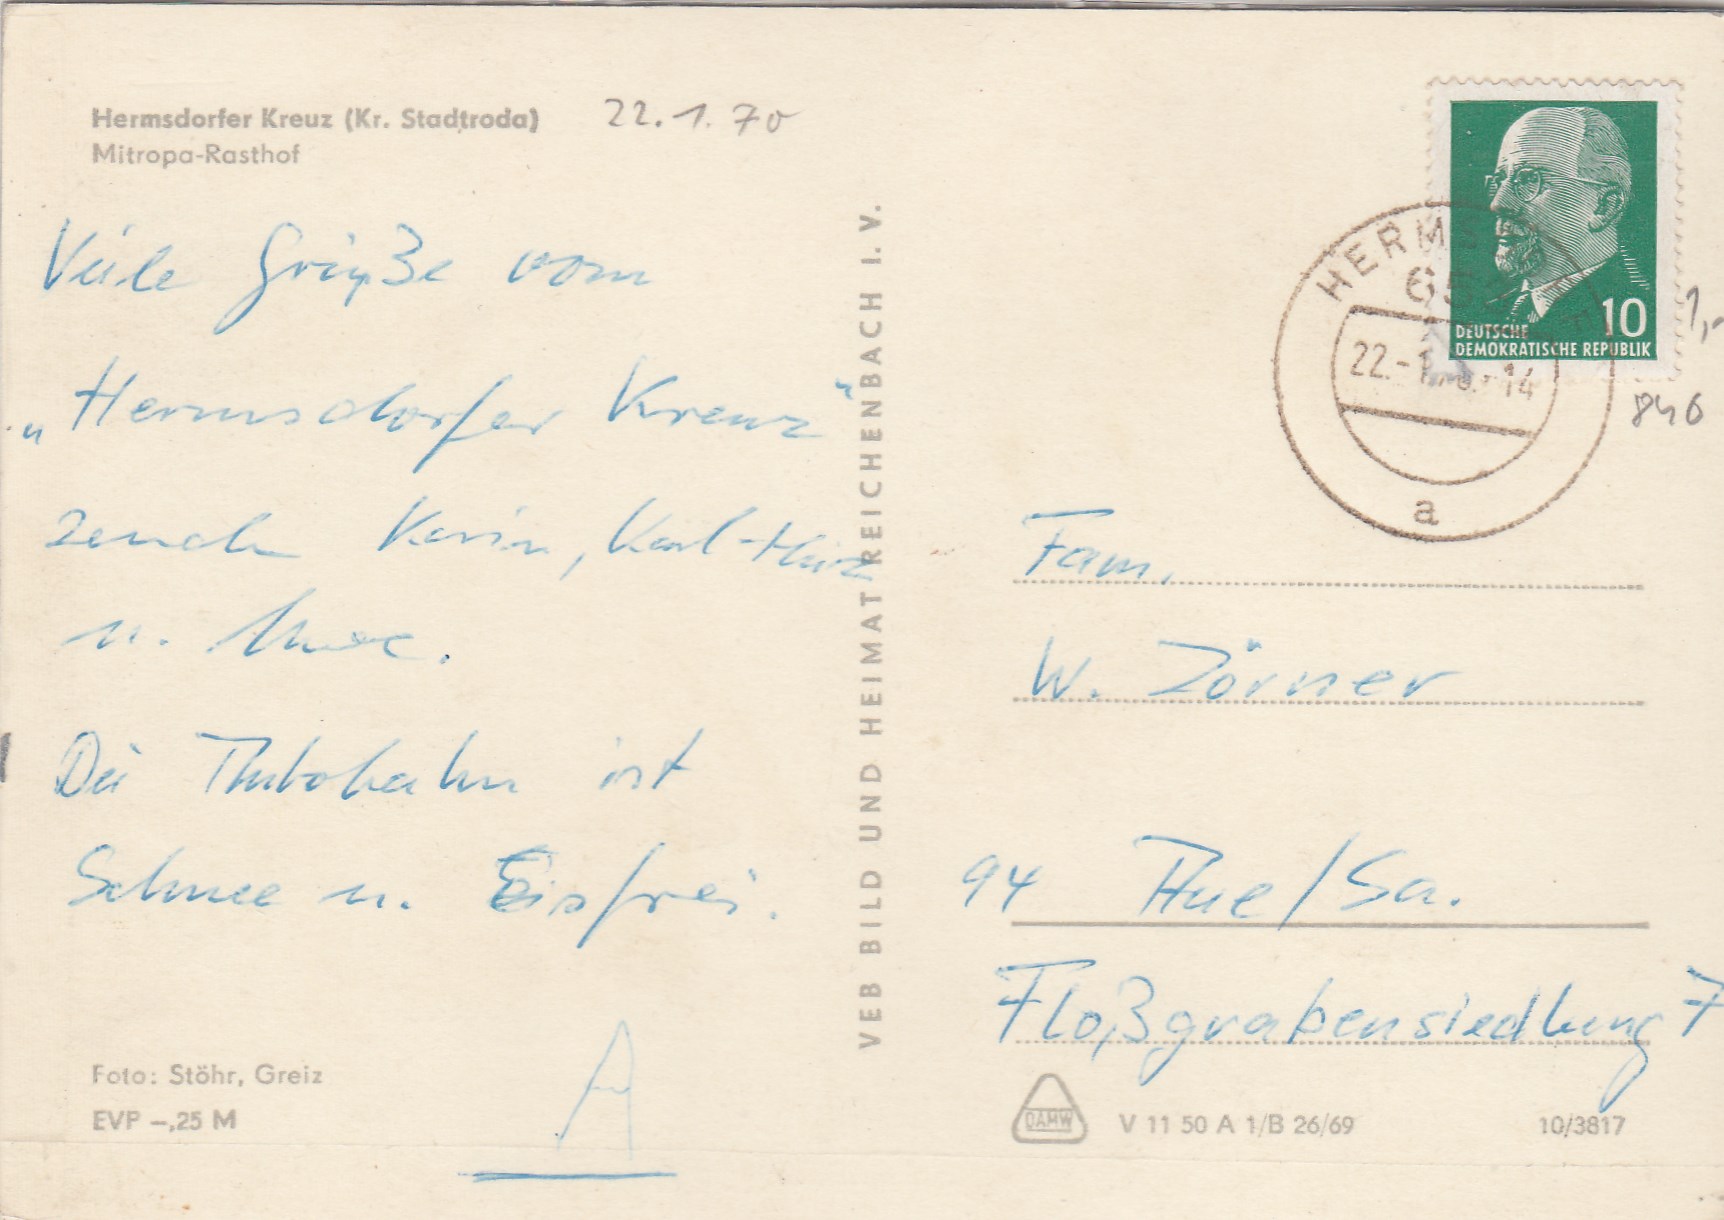 Hermsdorfer Kreuz (Kr. Stadtroda)
22.1.70
Mitropa-Rasthof
Viele Grüße vom
„Hermsdorfer Kreuz"
Karin, Karl-Heinz
u.
Die Autobahn ist
Schnee u. Eisfrei.
A
Foto: Stöhr, Greiz
EVP –,25 M
VEB BILD UND HEIMAT REICHENBACH I. V.
10
DEUTSCHE
DEMOKRATISCHE REPUBLIK
HERMS
65
22.-1. -14
a
1,-
846
Fam.
W. Zörner
94 Aue/Sa.
Floßgrabensiedlung 7
DAMW
V 11 50 A 1/B 26/69
10/3817